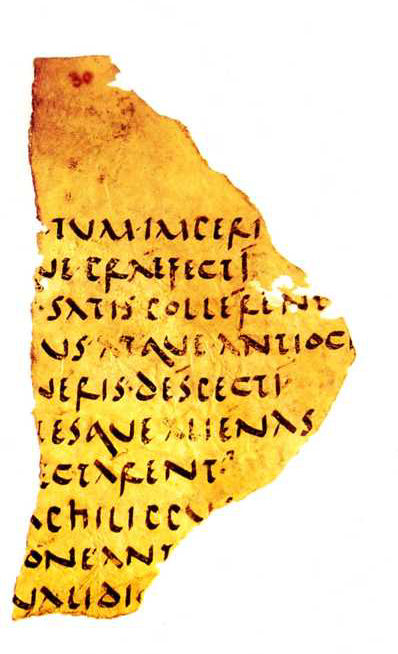 30
TUM·IMPERI
UE·PRAEFECTI
·SATIS·POLLERENT
US·ATQUE·ANTIOC
UERIS·DESPECTI
ESQUE·ALIENAS
ECTARENT
PHILIPPU
ONE·ANT
UALIDI